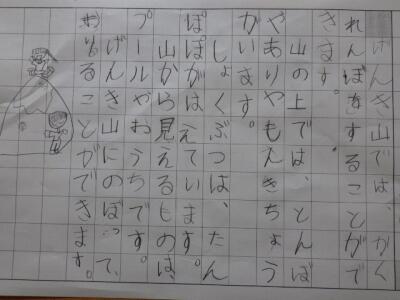 げんき山では、かく
れんぼをすることがで
きます。
山の上では、とんぼ
やありやもんきちょう
がいます。
しょくぶつは、たん
ぽぽがはえています。
山から見えるものは、
プールやおうちです。
げんき山にのぼって、
おりることができます。